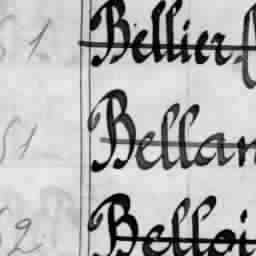 51. Bellier
51 Bellan
52 Belloi